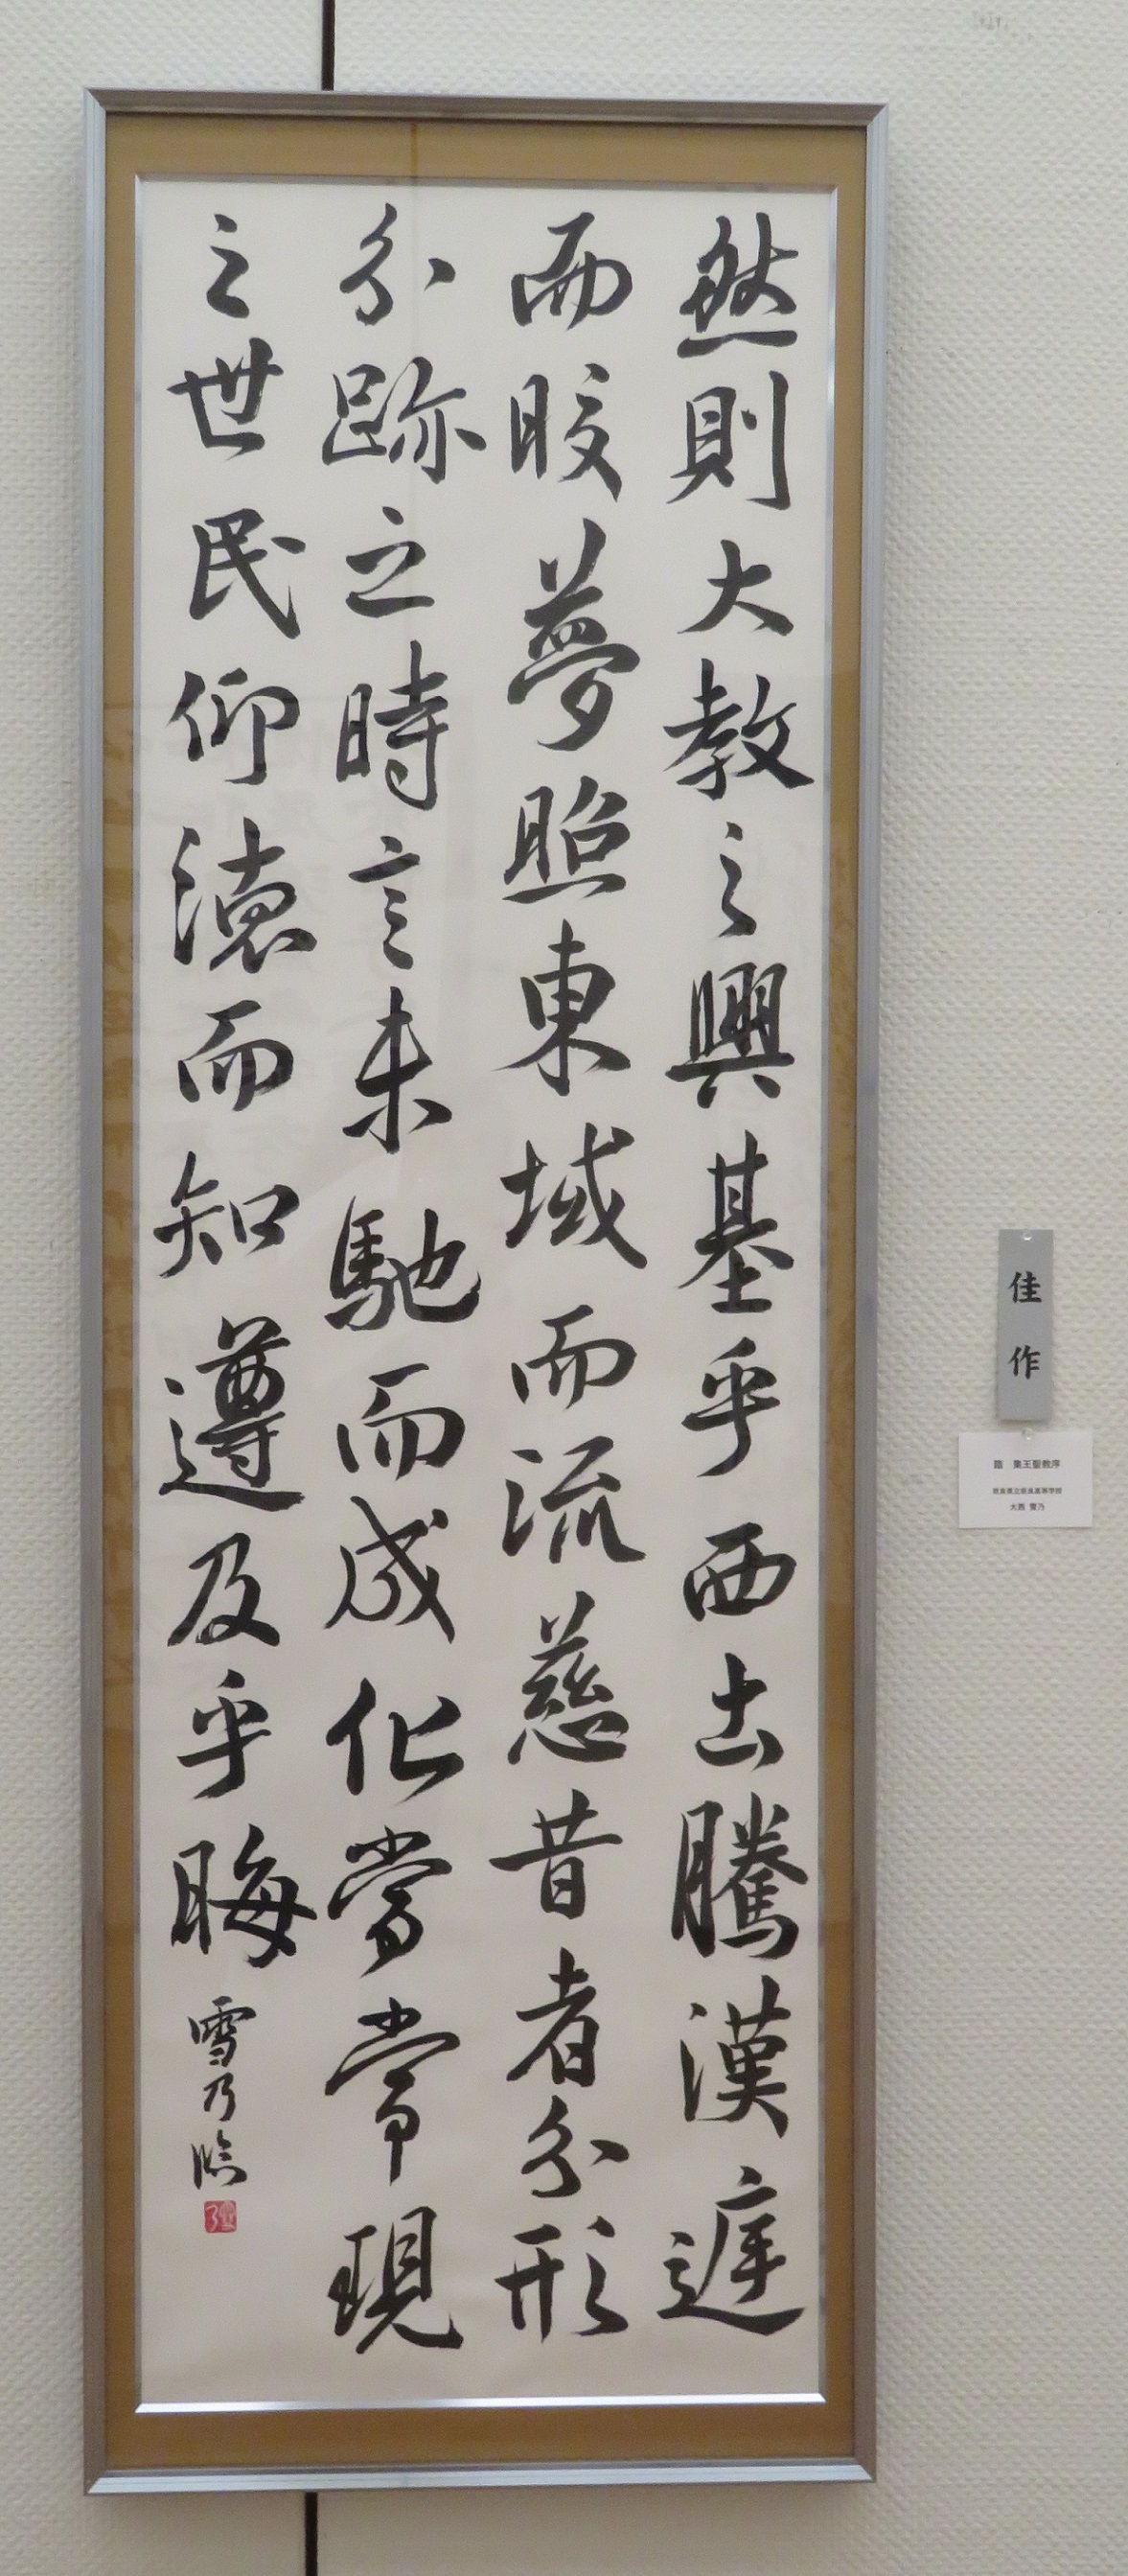 然則大教之興基乎西土騰漢遅
而皎夢照東域而流慈昔者分形
分跡之時言未馳而成化當常現
之世民仰德而知遵及乎晦
雪乃臨
佳作
臨 集王聖教序
奈良県立奈良高等学校
大西 雪乃